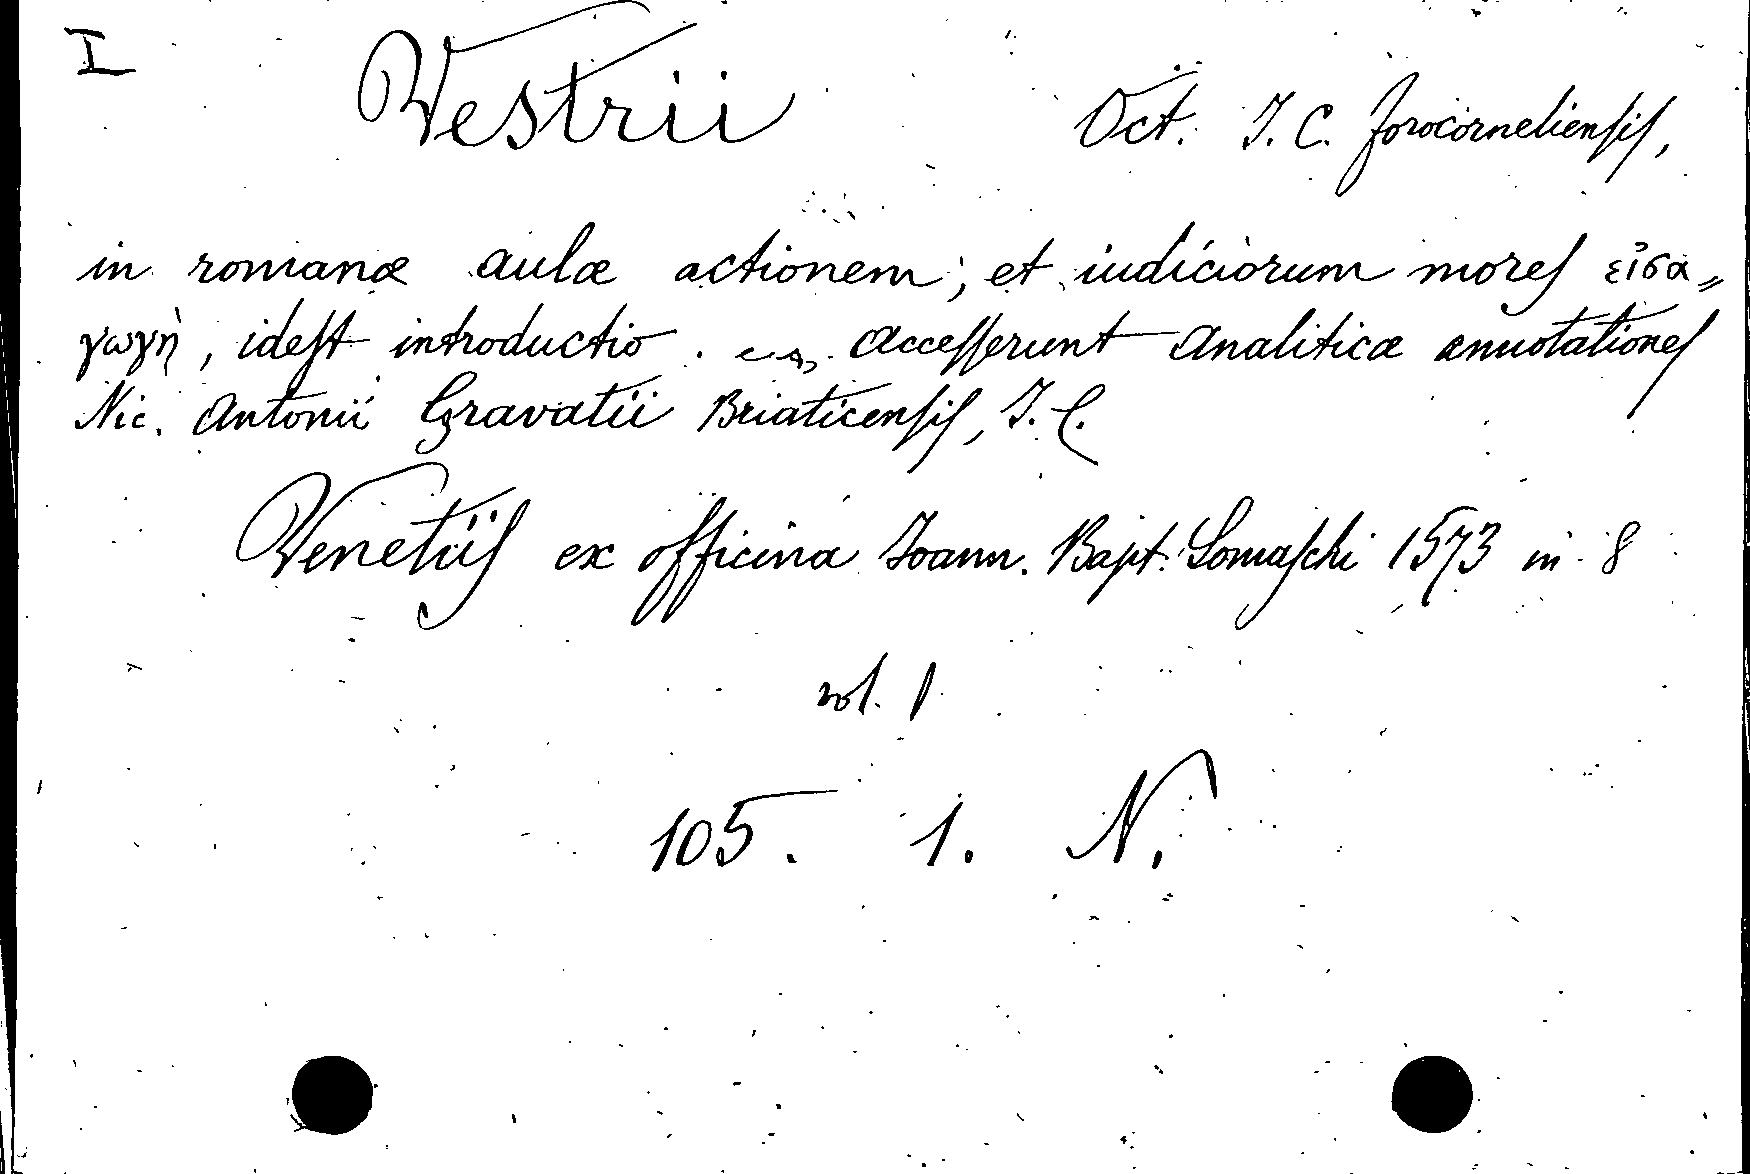 I Vestrii Oct. I. C. forocorneliensis,
in romanæ aulæ actionem, et iudiciorum mores εἰσα„
γωγὴ, idest introductio. Accesserunt Analiticæ annotationes
Nic. Antonii Gravatii Briaticensis, I. C.
Venetiis ex officina Ioann. Bapt. Somaschi 1573 in 8
vol. 1
105. 1. N.